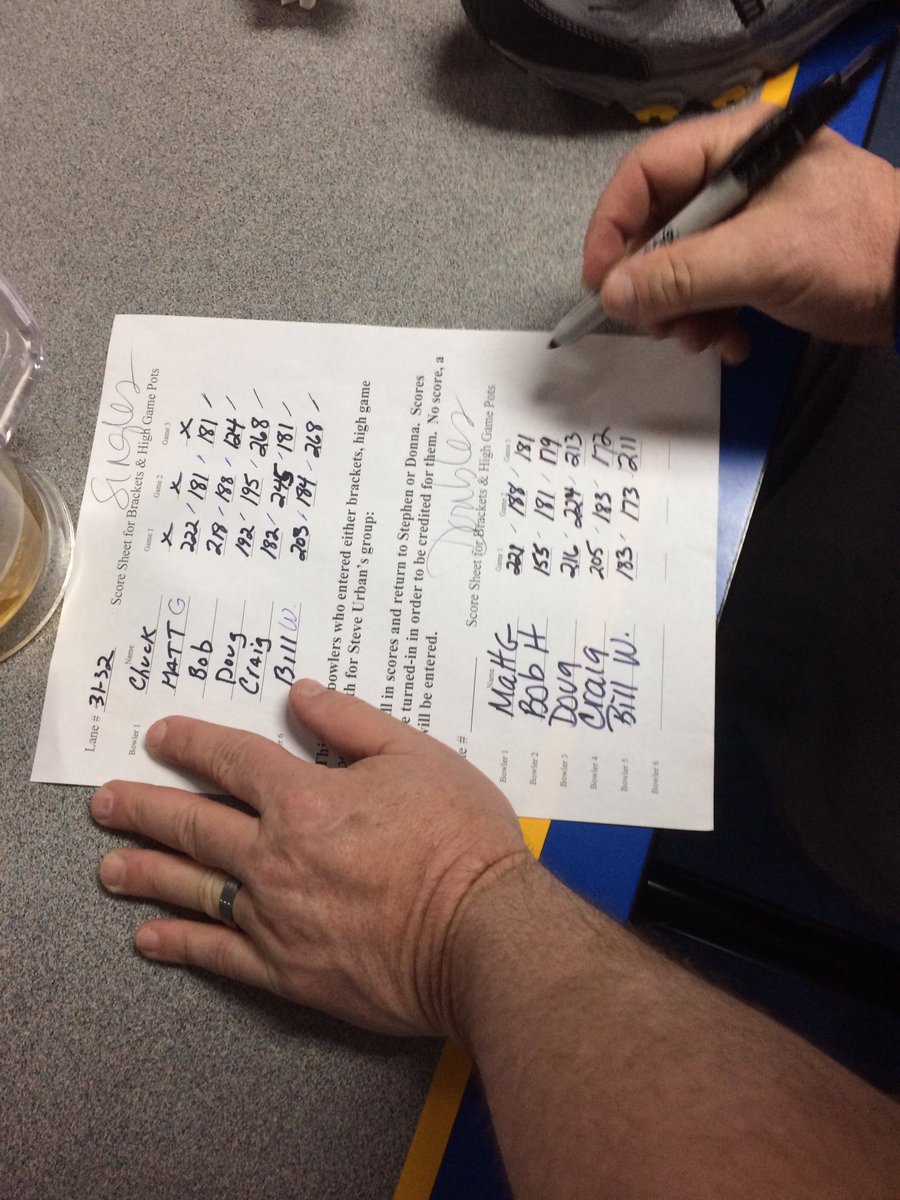 Singles
Score Sheet for Brackets & High Game Pots
Lane # 31-32
Name Game 1 Game 2 Game 3
Bowler 1 Chuck X X X
MATT G 222 181 181
Bob 218 188 124
Doug 192 195 268
Craig 182 245 181
Bill W. 203 184 268
bowlers who entered either brackets, high game
for Steve Urban's group:
in scores and return to Stephen or Donna. Scores
turned-in in order to be credited for them. No score, a
will be entered.
Doubles
Score Sheet for Brackets & High Game Pots
#
Name Game 1 Game 2 Game 3
Bowler 1 Matt G 221 188 181
Bowler 2 Bob H 155 181 179
Bowler 3 Doug 216 224 213
Bowler 4 Craig 205 183 172
Bowler 5 Bill W. 183 173 211
Bowler 6